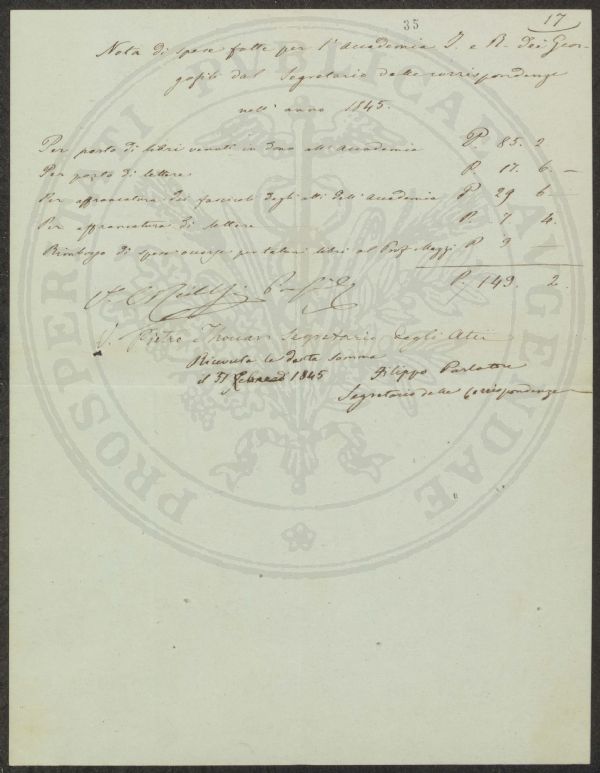 35
17
Nota di spese fatte per l'Accademia I. e R. dei Geor-
gofili dal Segretario delle corrispondenze
nell'anno 1845.
Per porto di libri venuti in dono all'Accademia P. 85. 2
Per porto di lettere P. 17. 6. —
Per affrancatura dei fascicoli degli atti dell'Accademia P. 29 6 —
Per affrancatura di lettere P. 7 4.
Rimborso di spese occorse per taluni libri al Prof. Mazzi P. 9 —
P. 149. 2.
V. Pietro Thouar Segretario degli Atti
Ricevuta la detta somma
il 31 1845 Filippo Parlatore
Segretario delle Corrispondenze
PROSPERITATI PUBLICAE AUGENDAE